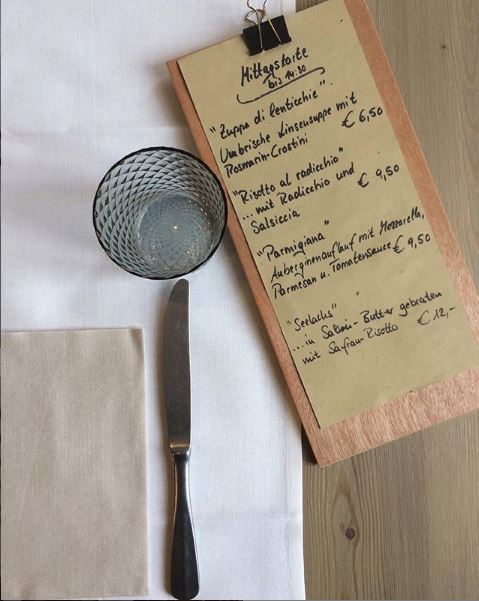 Mittagskarte
bis 14:30
"Zuppa di lenticchie"
Umbrische Linsensuppe mit
Rosmarin-Crostini € 6,50
"Risotto al radicchio"
...mit Radicchio und € 9,50
Salsiccia
"Parmigiana"
Auberginenauflauf mit Mozzarella,
Parmesan u. Tomatensauce € 9,50
"Seelachs"
...in Salbei-Butter gebraten
mit Safran-Risotto € 12,-